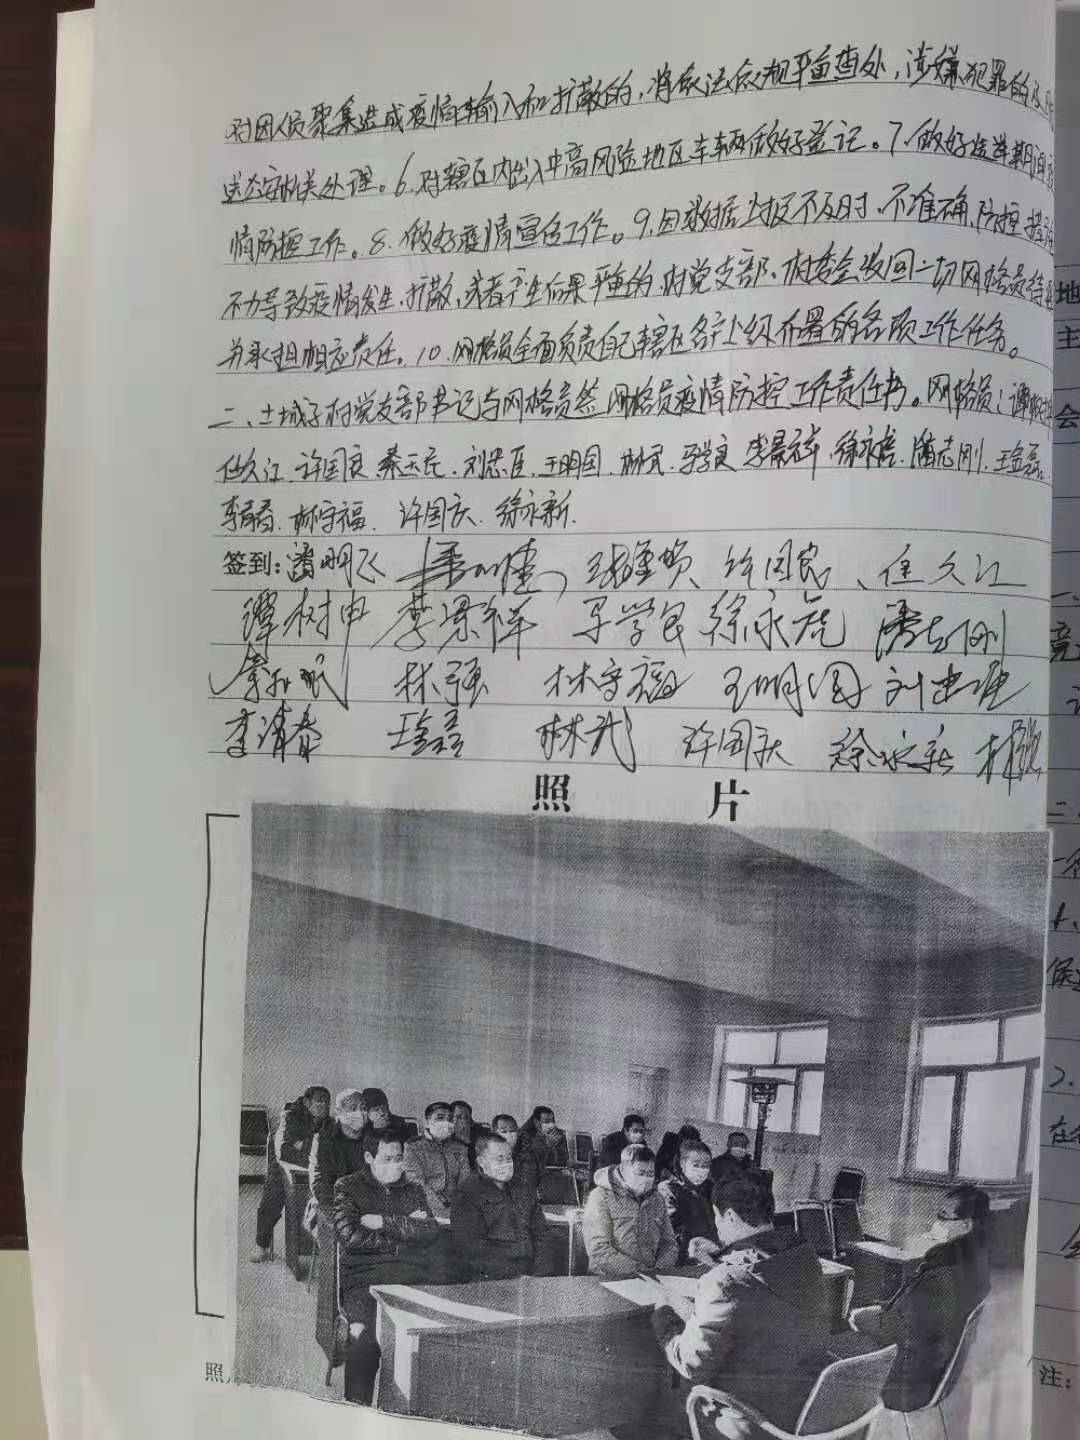 对因人员聚集造成疫情输入和扩散的,将依法依规严肃查处,涉嫌犯罪的
送公安机关处理。6.对辖区内出入中高风险地区车辆做好登记。7.做好选举期间
情防控工作。8.做好疫情宣传工作。9.因数据上报不及时、不准确,防控措施
不力导致疫情发生、扩散,或者产生后果严重的,村党支部、村委会收回一切网格员待遇
并承担相应责任。10.网格员全面负责自己辖区各户上级布署的各项工作任务。
二、土城子村党支部书记与网格员签网格员疫情防控工作责任书。网格员:谭树
任久江、许国良、秦玉民、刘忠臣、王明国、林武、马学良、李景祥、徐永 、潘志刚、王金磊、
李青春、林守福、许国庆、徐永新.
签到:潘明飞 许国良、任久江
谭树申 李景祥 马学良 徐永 潘志刚
林强 林守福 王明国 刘忠
李清春 王金磊 林武 许国庆 徐永新
照 片
照
地
主
会
二、
2.
在
注: